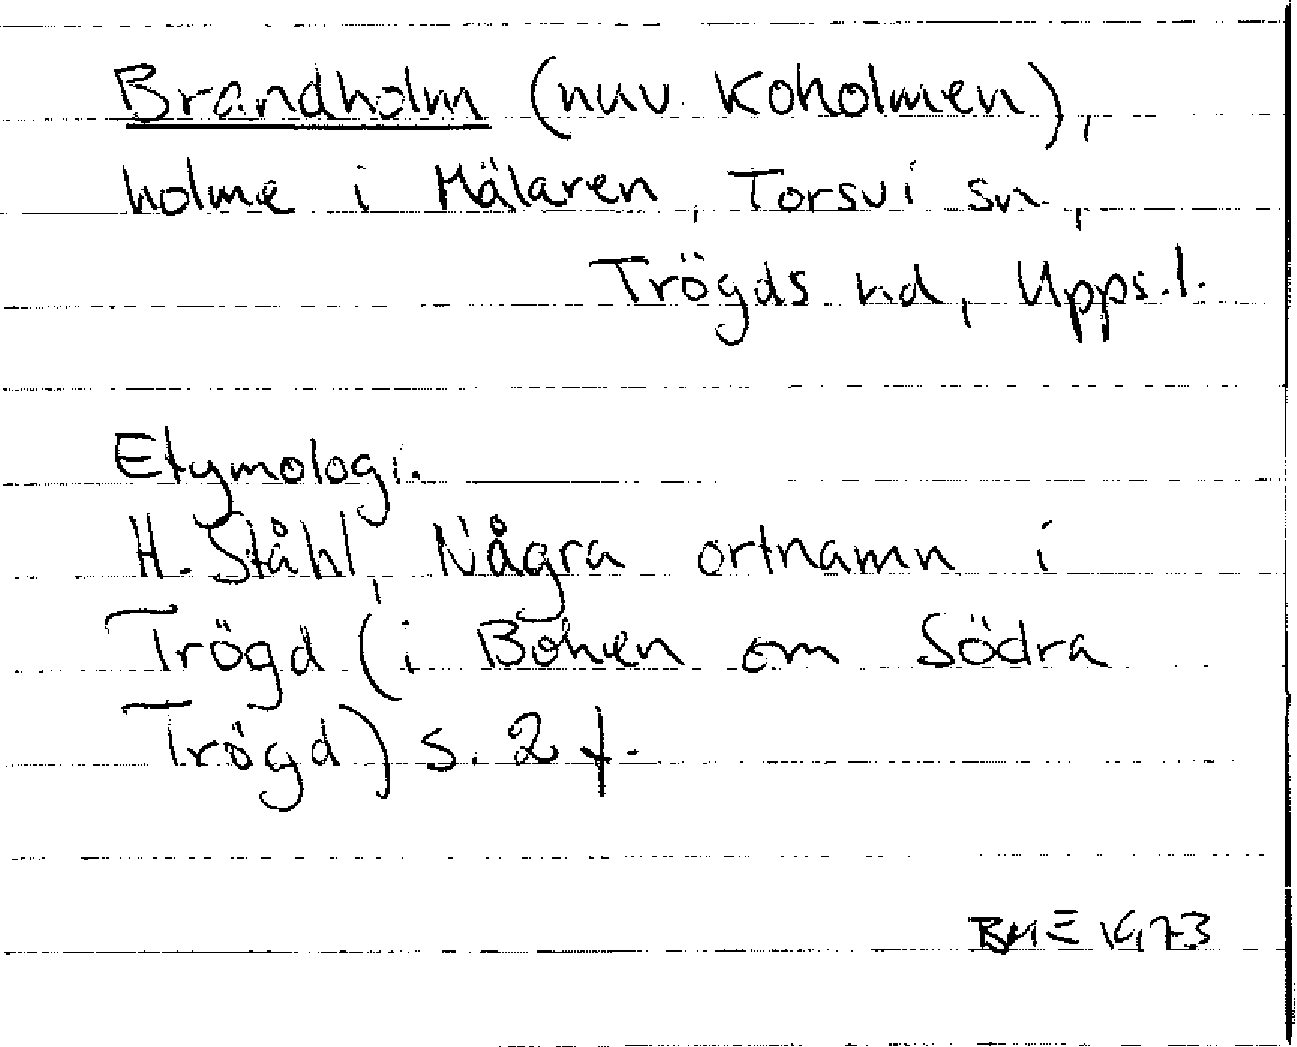 Brandholm (nuv. Koholmen),
holme i Mälaren, Torsvi sn.,
Trögds hd, Upps.l.
Etymologi.
H. Ståhl, Några ortnamn i
Trögd (i Boken om Södra
Trögd) s. 2 f.
BME 1973